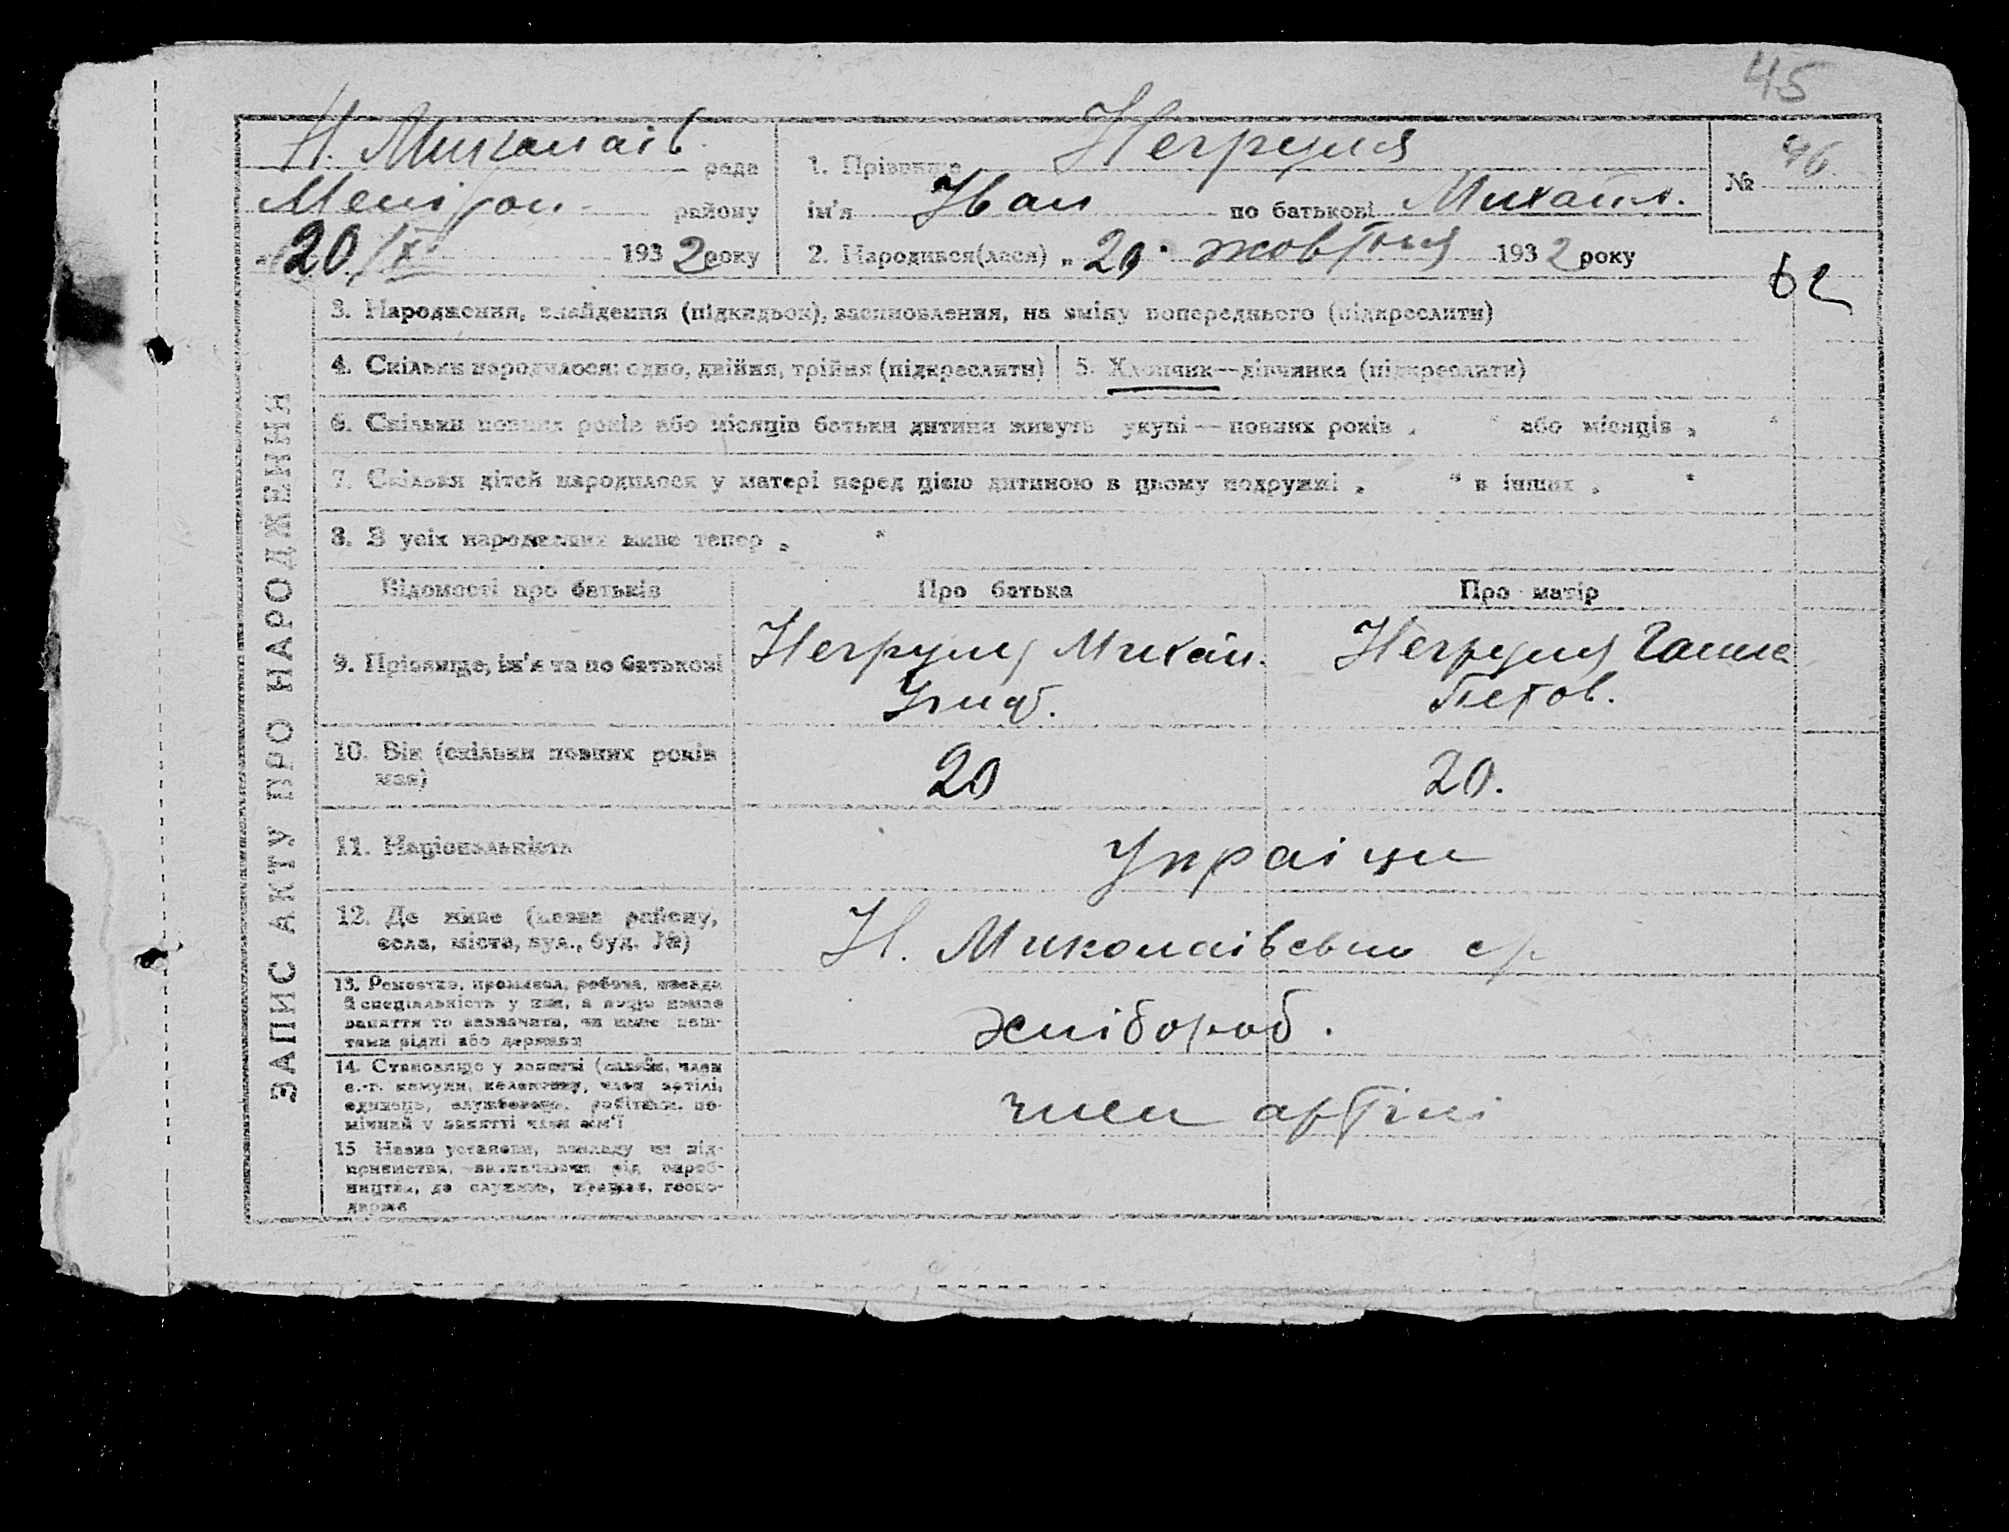 45
Н. Миколаів. рада
Меліфоп. району
20/X 1932 року
1. Прізвище Негруля
ім'я Іван по батькові Михайл.
2. Народився(лася) „20" жовтня 1932 року
№ 46
62
ЗАПИС АКТУ ПРО НАРОДЖЕННЯ
3. Народження, знайдення (підкидьок), засиновлення, на зміну попереднього (підкреслити)
4. Скільки народилося: одно, двійня, трійня (підкреслити)
5. Хлопчик—дівчинка (підкреслити)
6. Скільки повних років або місяців батьки дитини живуть укупі—повних років „ " або місяців „ "
7. Скільки дітей народилося у матері перед цією дитиною в цьому подружжі „ " в інших „ "
8. З усіх народжених живе тепер „ "
Відомості про батьків
Про батька
Про матір
9. Прізвище, ім'я та по батькові
Негруля Михай.
Гнаб.
Негруля Ганна
Петов.
10. Вік (скільки повних років
має)
20
20.
11. Національність
Украінци
12. Де живе (назва району,
села, міста, вул., буд. №)
Н. Миколаівська с/р
13. Ремество, промисел, робота, посада
й спеціальність у них, а якщо немає
заняття то зазначити, чи живе кош-
тами рідні або держави
хлібороб.
14. Становище у занятті (хазяїн, член
с.-г. комуни, колективу, член артілі,
одинець, службовець, робітник, по-
мічний у занятті член сім'ї
член артілі
15 Назва установи, закладу чи під-
приємства, зазначаючи рід вироб-
ництва, де служить, працює, госпо-
дарює